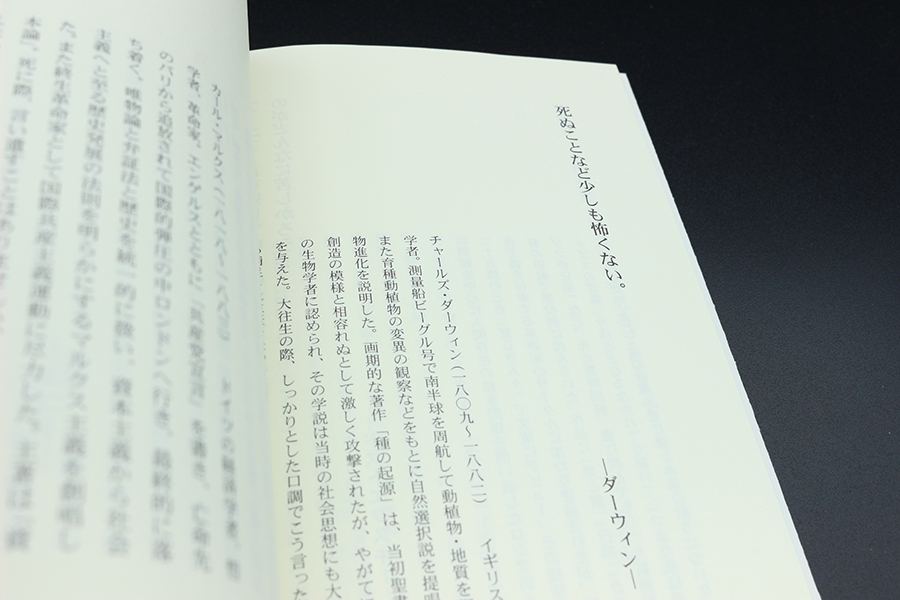 死ぬことなど少しも怖くない。
―ダーウィン―
チャールズ・ダーウィン(一八〇九〜一八八二) イギリス
学者。測量船ビーグル号で南半球を周航して動植物・地質を
また育種動植物の変異の観察などをもとに自然選択説を提唱
物進化を説明した。画期的な著作「種の起源」は、当初聖書
創造の模様と相容れぬとして激しく攻撃されたが、やがて
の生物学者に認められ、その学説は当時の社会思想にも大
を与えた。大往生の際、しっかりとした口調でこう言った
カール・マルクス(一八一八〜一八八三) ドイツの経済学者、哲
学者、革命家。エンゲルスとともに「共産党宣言」を書き、亡命先
のパリから追放されて国際的弾圧の中ロンドンへ行き、最終的に落
ち着く。唯物論と弁証法と歴史を統一的に扱い、資本主義から社会
主義へと至る歴史発展の法則を明らかにするマルクス主義を創唱し
た。また終生革命家として国際共産主義運動に尽力した。主著は「資
本論」。死に際、言い遺すことはありませんか